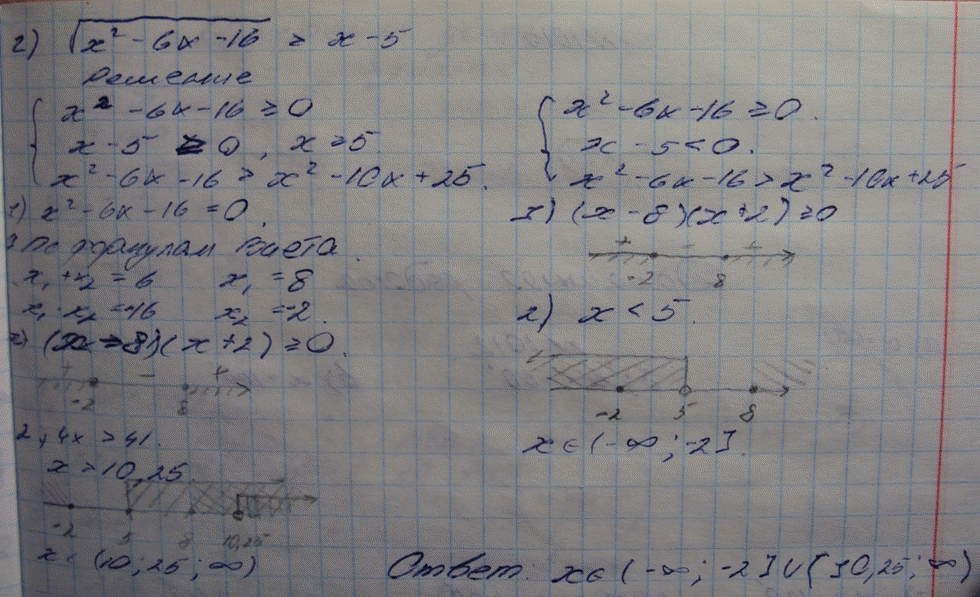 2) √(x² - 6x - 16) > x - 5
Решение
{ x² - 6x - 16 ≥ 0
x - 5 ≥ 0, x ≥ 5
x² - 6x - 16 > x² - 10x + 25.
1) x² - 6x - 16 = 0
По формулам Виета
x₁ + x₂ = 6 x₁ = 8
x₁ · x₂ = -16 x₂ = -2.
2) (x - 8)(x + 2) ≥ 0.
+ - +
-2 8
2, 4x > 41.
x > 10,25
-2 5 8 10,25
x ∈ (10,25; ∞)
{ x² - 6x - 16 ≥ 0.
x - 5 < 0.
x² - 6x - 16 > x² - 10x + 25
1) (x - 8)(x + 2) ≥ 0
+ - +
-2 8
2) x < 5.
-2 5 8
x ∈ (-∞; -2].
Ответ: x ∈ (-∞; -2] ∪ (10,25; ∞)